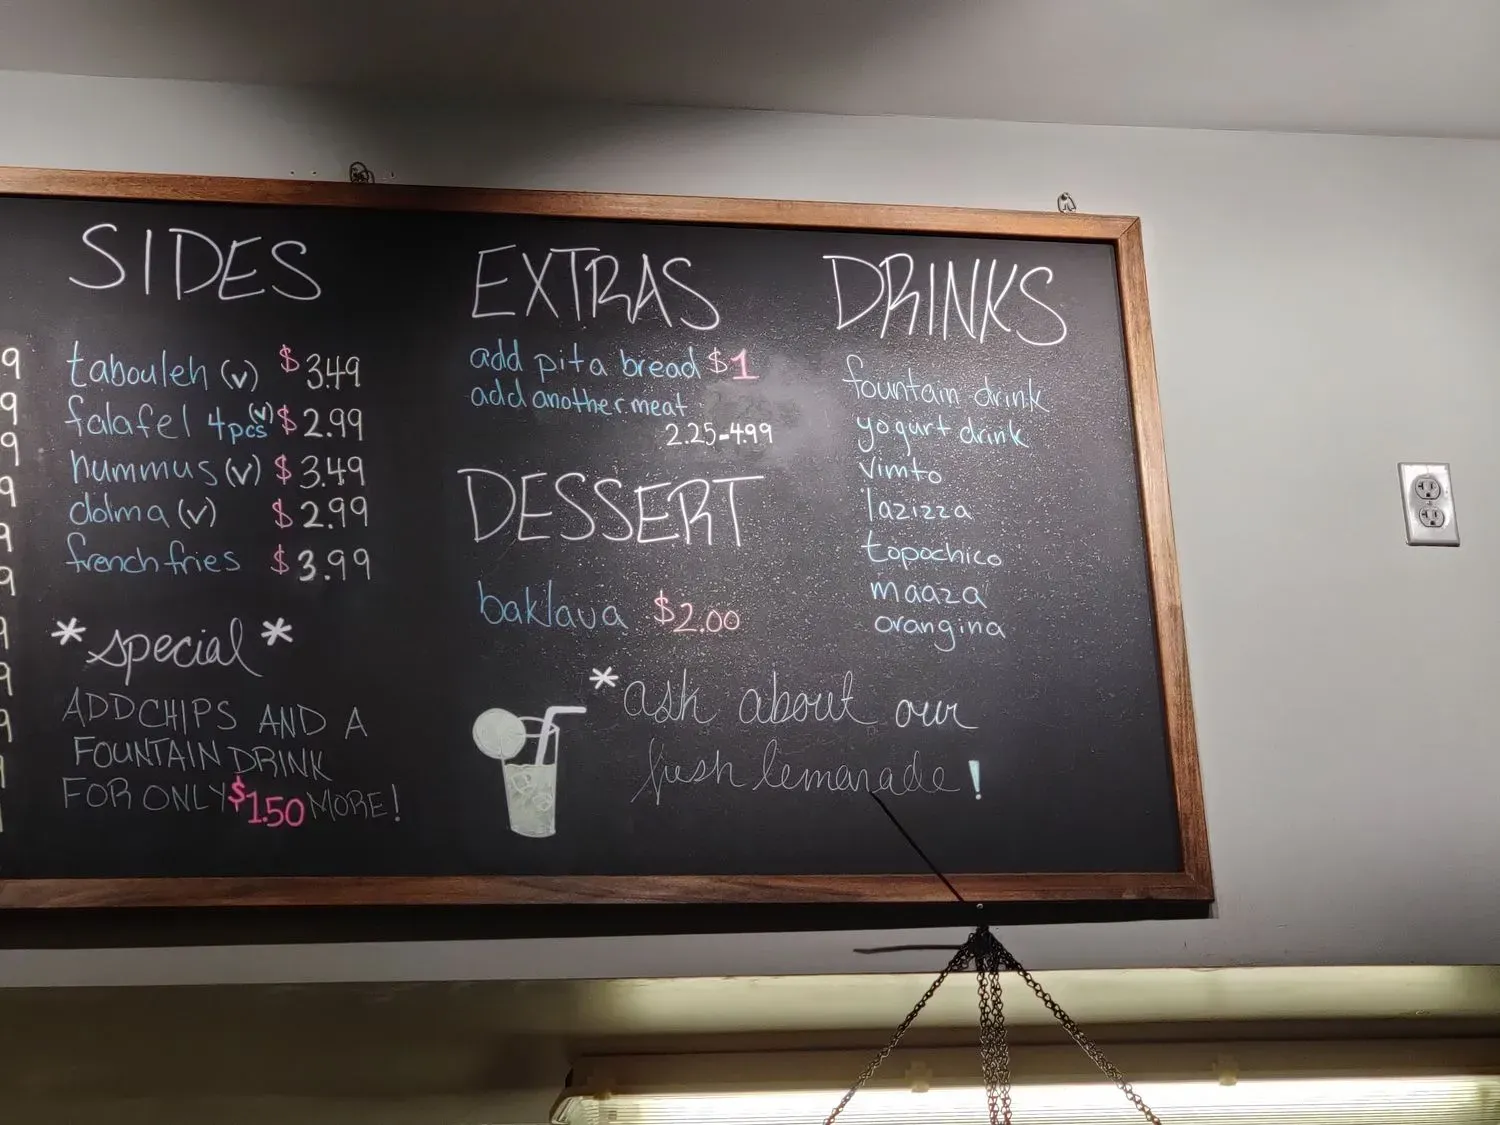 SIDES
tabouleh (v) $3.49
falafel 4pcs (v) $2.99
hummus (v) $3.49
dolma (v) $2.99
french fries $3.99
*special*
ADD CHIPS AND A
FOUNTAIN DRINK
FOR ONLY $1.50 MORE!
EXTRAS
add pita bread $1
add another meat
2.25-4.99
DESSERT
baklava $2.00
DRINKS
fountain drink
yogurt drink
vimto
lazizza
topochico
maaza
orangina
*ask about our
fresh lemonade!
9
9
9
9
9
9
9
9
9